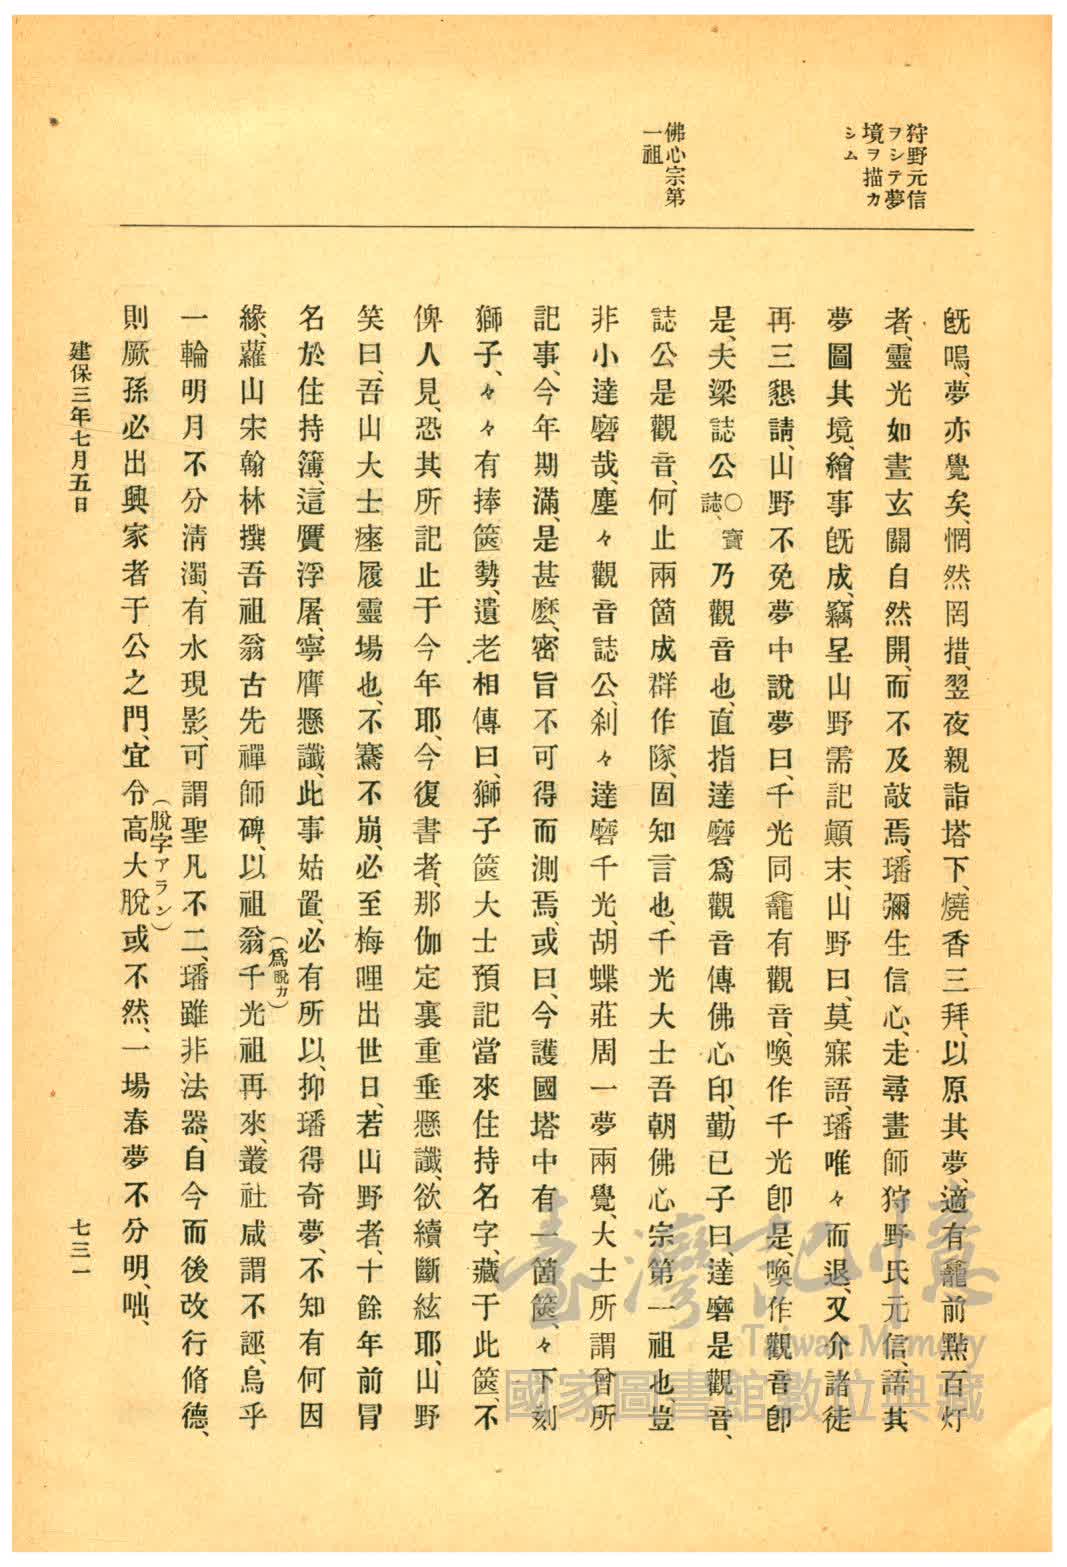 狩野元信
ヲシテ夢
境ヲ描カ
シム
佛心宗第
一祖
既鳴、夢亦覺矣、惘然罔措、翌夜親詣塔下、燒香三拜、以原其夢、適有龕前點百灯
者、靈光如晝玄關自然開、而不及敲焉、璠彌生信心、走尋畫師狩野氏元信、語其
夢圖其境、繪事既成、竊呈山野需記顛末、山野曰、莫寐語、璠唯々而退、又介諸徒
再三懇請、山野不免夢中說夢曰、千光同龕有觀音、喚作千光卽是、喚作觀音卽
是、夫梁誌公〇寶誌、乃觀音也、直指達磨爲觀音傳佛心印、勤巳子曰、達磨是觀音、
誌公是觀音、何止兩箇成群作隊、固知言也、千光大士吾朝佛心宗第一祖也、豈
非小達磨哉、塵々觀音誌公、刹々達磨千光、胡蝶莊周一夢兩覺、大士所謂曾所
記事、今年期滿、是甚麽、密旨不可得而測焉、或曰、今護國塔中有一箇篋、々下刻
獅子、々々有捧篋勢、遺老相傳曰、獅子篋大士預記當來住持名字、藏于此篋、不
俾人見、恐其所記止于今年耶、今復書者、那伽定裏重垂懸讖、欲續斷絃耶、山野
笑曰、吾山大士瘞履靈場也、不騫不崩、必至梅哩出世日、若山野者、十餘年前冒
名於住持簿、這贋浮屠、寧膺懸讖、此事姑置、必有所以、抑璠得奇夢、不知有何因
(爲脫カ)
緣、蘿山宋翰林撰吾祖翁古先禪師碑、以祖翁千光祖再來、叢社咸謂不誣、烏乎
一輪明月不分淸濁、有水現影、可謂聖凡不二、璠雖非法器、自今而後改行脩德、
(脫字アラン)
則厥孫必出興家者于公之門、宜令高大脫或不然、一場春夢不分明、咄、
建保三年七月五日
七三一
臺灣記憶
Taiwan Memory
國家圖書館數位典藏